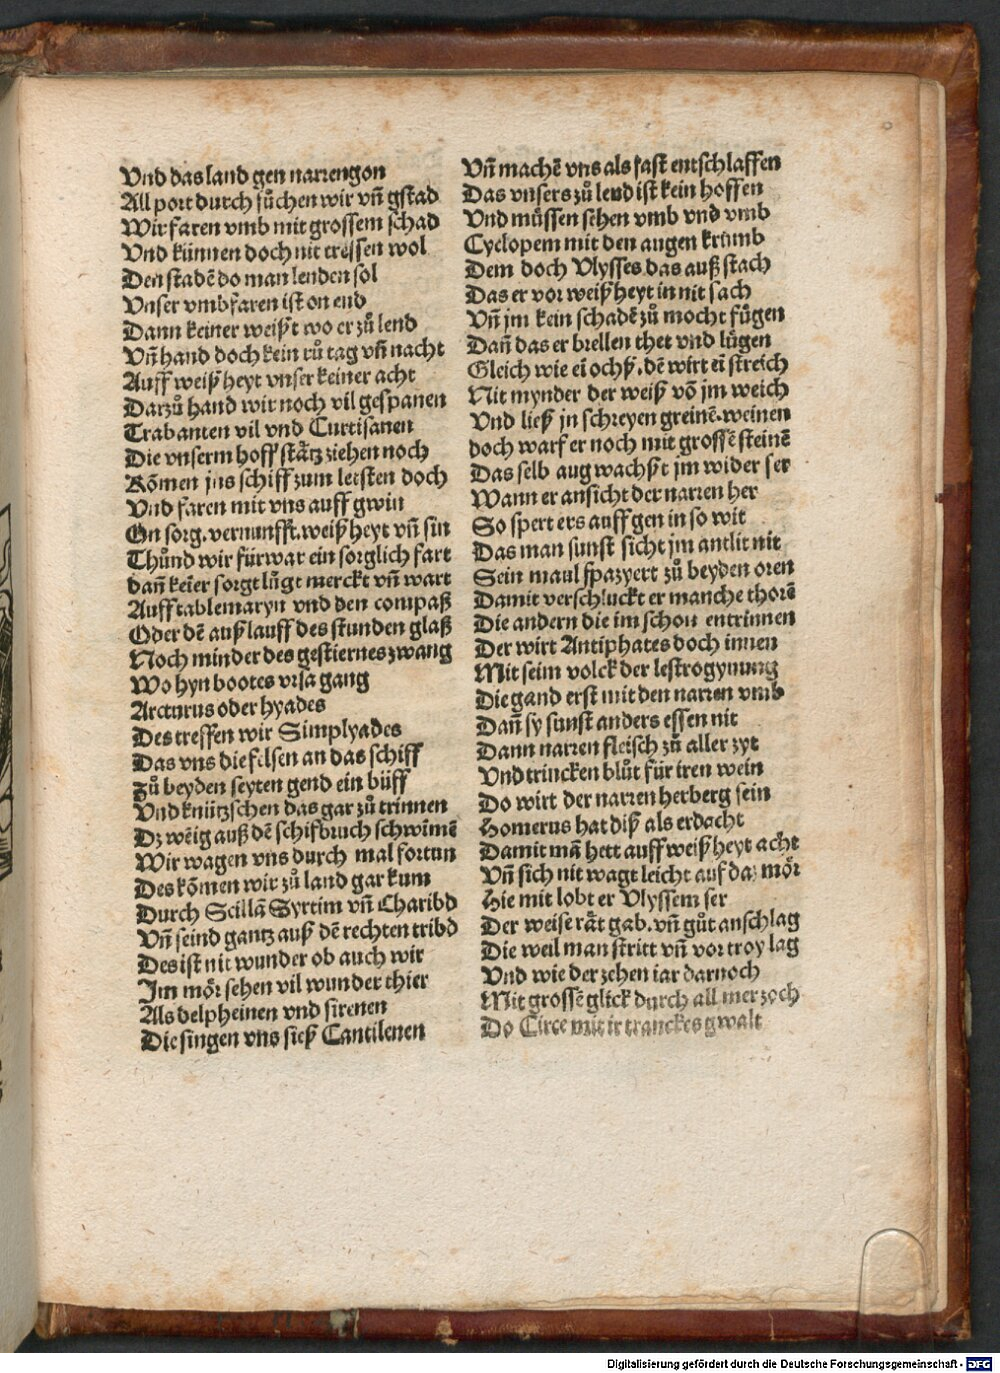 Vnd das land gen narrengon
All port durch sůchen wir vñ gstad
Wir faren vmb mit grossem schad
Vnd künnen doch nit treffen wol
Den stadẽ do man lenden sol
Vnser vmbfaren ist on end
Dann keiner weißt wo er zů lend
Vñ hand doch kein rů tag vñ nacht
Auff weißheyt vnser keiner acht
Darzů hand wir noch vil gespanen
Trabanten vil vnd Curtisanen
Die vnserm hoff stätz ziehen noch
Kõmen jns schiff zum letsten doch
Vnd faren mit vns auff gwin
On sorg. vernunfft. weißheyt vñ sin
Thůnd wir fürwar ein sorglich fart
dañ keĩer sorgt lůgt merckt vñ wart
Auff tablemaryn vnd den compaß
Oder dẽ außlauff des stunden glaß
Noch minder des gestiernes zwang
Wo hyn bootes vrsa gang
Arcturus oder hyades
Des treffen wir Simplyades
Das vns die felsen an das schiff
Zů beyden seyten gend ein büff
Vnd knützschen das gar zů trinnen
Dz wẽig auß dẽ schifbruch schwĩmẽ
Wir wagen vns durch mal fortun
Des kõmen wir zů land gar kum
Durch Scillã Syrtim vñ Charibd
Vñ seind gantz auß dẽ rechten tribd
Des ist nit wunder ob auch wir
Im mör sehen vil wunder thier
Als delpheinen vnd sirenen
Die singen vns sieß Cantilenen
Vñ machẽ vns als fast entschlaffen
Das vnsers zů lend ist kein hoffen
Vnd müssen sehen vmb vnd vmb
Cyclopem mit den augen krumb
Dem doch Vlysses das auß stach
Das er vor weißheyt in nit sach
Vñ jm kein schadẽ zů mocht fůgen
Dañ das er brellen thet vnd lůgen
Gleich wie eĩ ochß. dẽ wirt eĩ streich
Nit mynder der weiß võ jm weich
Vnd ließ jn schreyen greinẽ. weinen
doch warf er noch mit grossẽ steinẽ
Das selb aug wachßt jm wider ser
Wann er ansicht der narren her
So spert ers auff gen in so wit
Das man sunst sicht jm antlit nit
Sein maul spazyert zů beyden oren
Damit verschluckt er manche thorẽ
Die andern die im schon entrinnen
Der wirt Antiphates doch innen
Mit seim volck der lestrogynung
Die gand erst mit den narren vmb
Dañ sy sunst anders essen nit
Dann narren fleisch zů aller zyt
Vnd trincken blůt für iren wein
Do wirt der narren herberg sein
Homerus hat diß als erdacht
Damit mã hett auff weißheyt acht
Vñ sich nit wagt leicht auf daz mör
Hie mit lobt er Vlyssem ser
Der weise rät gab. vñ gůt anschlag
Die weil man stritt vñ vor troy lag
Vnd wie der zehen iar darnoch
Mit grossẽ glick durch all mer zoch
Do Circe mit ir tranckes gwalt
Digitalisierung gefördert durch die Deutsche Forschungsgemeinschaft - DFG